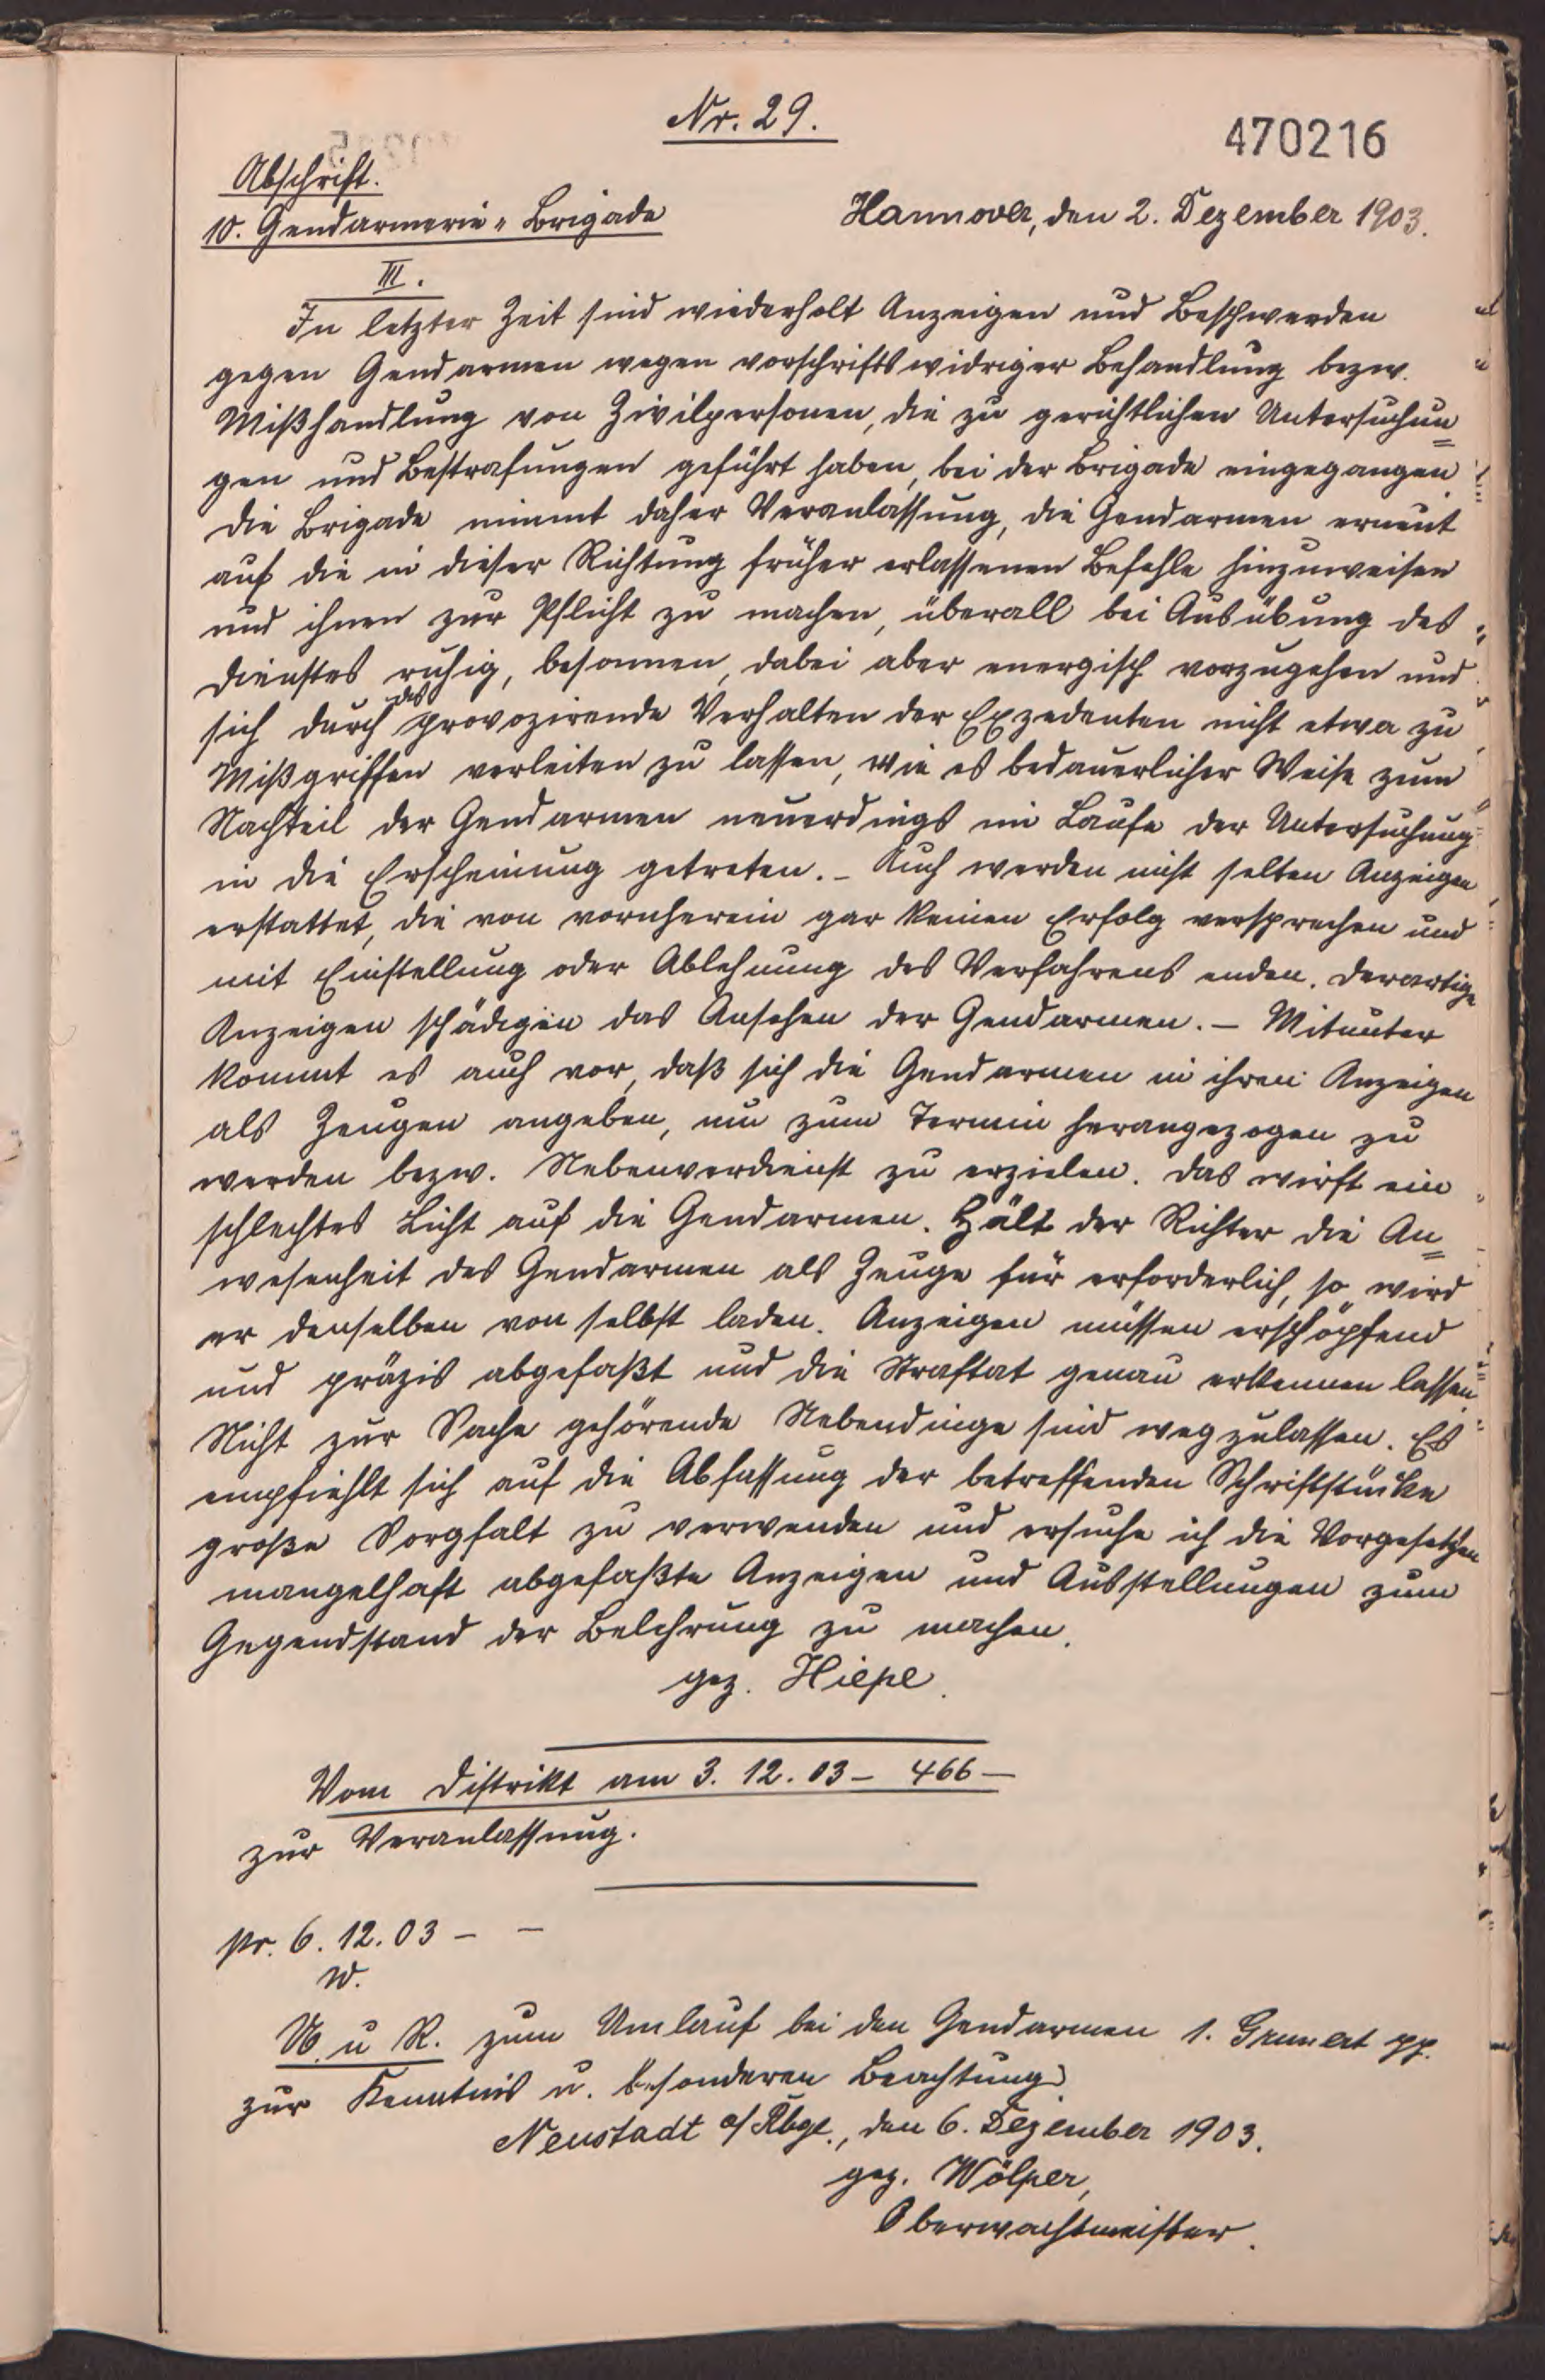 Nr. 29.
470216
Abschrift.
10. Gendarmerie-Brigade
Hannover, den 2. Dezember 1903.
III.
In letzter Zeit sind wiederholt Anzeigen und Beschwerden
gegen Gendarmen wegen vorschriftswidriger Behandlung bezw.
Mißhandlung von Zivilpersonen, die zu gerichtlichen Untersuchun=
gen und Bestrafungen geführt haben, bei der Brigade eingegangen.
Die Brigade nimmt daher Veranlassung, die Gendarmen erneut
auf die in dieser Richtung früher erlassenen Befehle hinzuweisen
und ihnen zur Pflicht zu machen, überall bei Ausübung des
Dienstes ruhig, besonnen, dabei aber energisch vorzugehen und
sich durch das provozirende Verhalten der Exzedenten nicht etwa zu
Mißgriffen verleiten zu lassen, wie es bedauerlicher Weise zum
Nachteil der Gendarmen neuerdings im Laufe der Untersuchung
in die Erscheinung getreten. – Auch werden nicht selten Anzeigen
erstattet, die von vornherein gar keinen Erfolg versprechen und
mit Einstellung oder Ablehnung des Verfahrens enden. Derartige
Anzeigen schädigen das Ansehen der Gendarmen. – Mitunter
kommt es auch vor, daß sich die Gendarmen in ihren Anzeigen
als Zeugen angeben, um zum Termin herangezogen zu
werden bezw. Nebenverdienst zu erzielen. Das wirft ein
schlechtes Licht auf die Gendarmen. Hält der Richter die An=
wesenheit des Gendarmen als Zeuge für erforderlich, so wird
er denselben von selbst laden. Anzeigen müssen erschöpfend
und präzis abgefaßt und die Straftat genau erkennen lassen.
Nicht zur Sache gehörende Nebendinge sind wegzulassen. Es
empfiehlt sich auf die Abfassung der betreffenden Schriftstücke
große Sorgfalt zu verwenden und ersuche ich die Vorgesetzten
mangelhaft abgefaßte Anzeigen und Ausstellungen zum
Gegendstand der Belehrung zu machen.
gez. Hiepe.
Vom Distrikt am 3. 12. 03 – 466 –
zur Veranlassung.
pr. 6. 12. 03 – –
W.
U. u R. zum Umlauf bei den Gendarmen 1. Grunert pp.
zur Kenntnis u. besonderen Beachtung.
Neustadt a/Rbge., den 6. Dezember 1903.
gez. Wölper,
Oberwachtmeister.